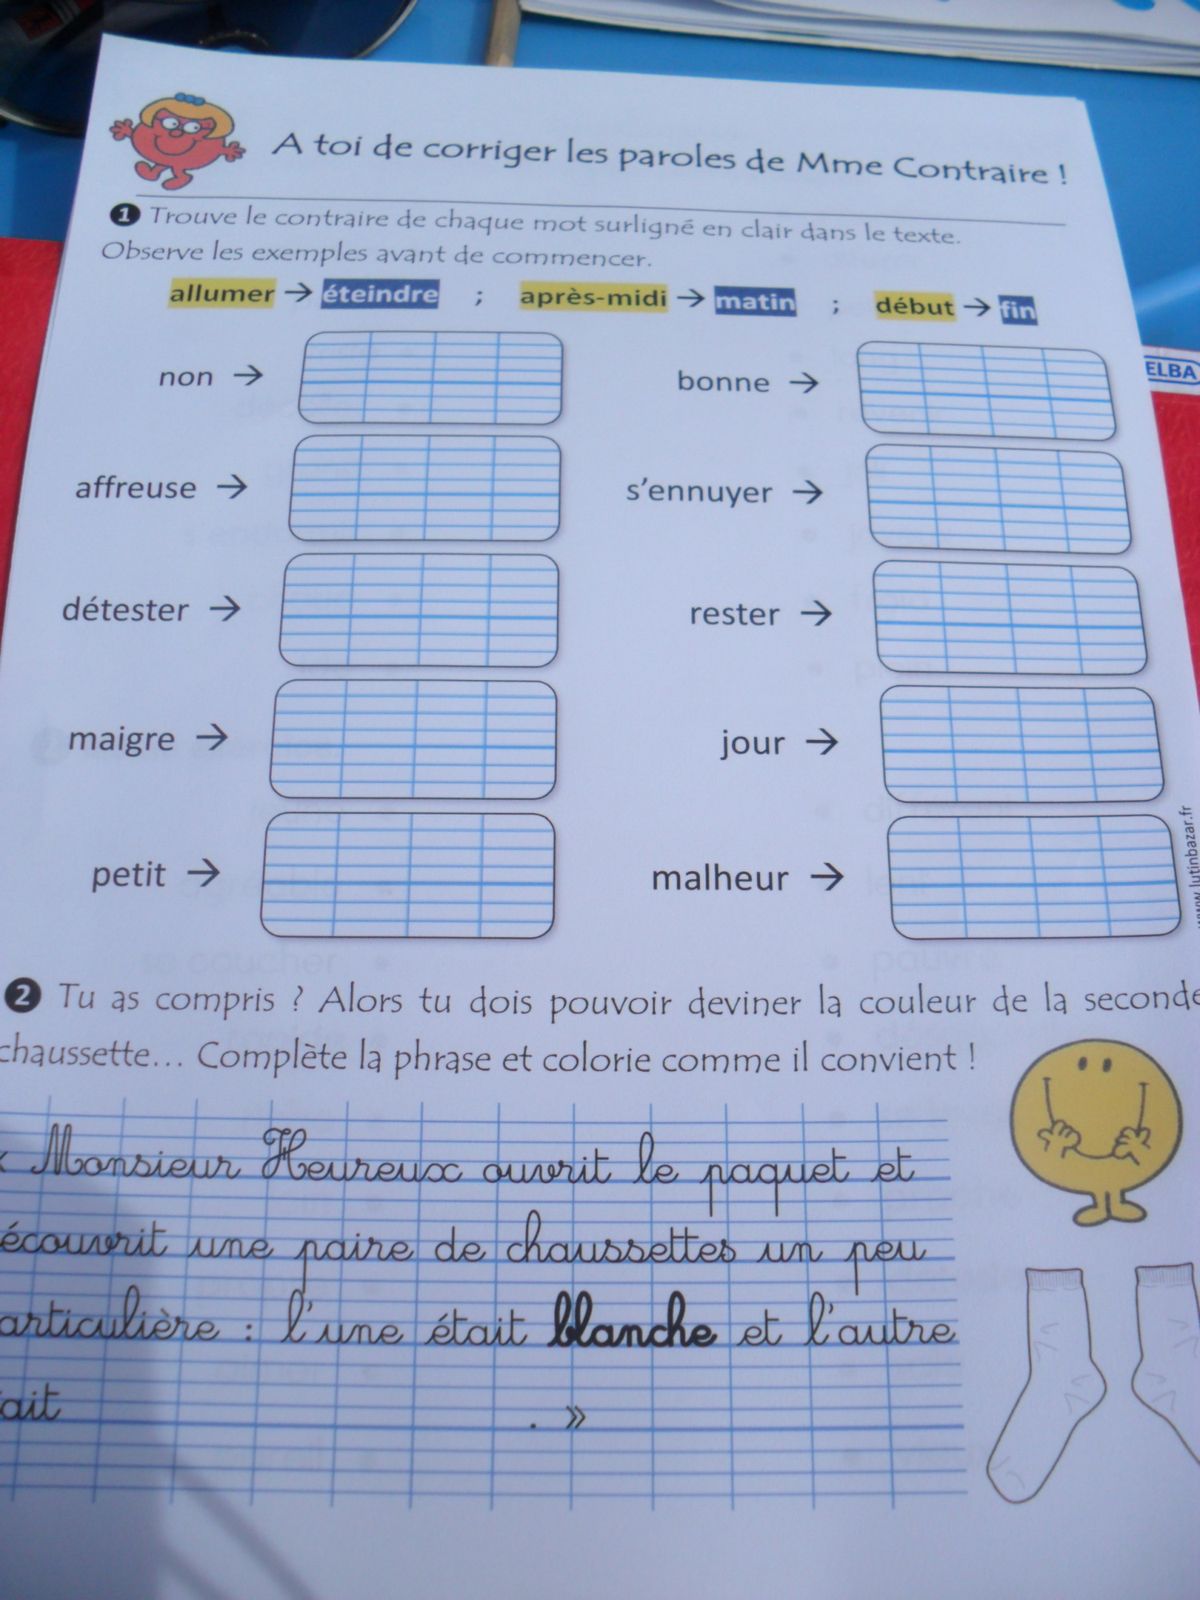 A toi de corriger les paroles de Mme Contraire !
1 Trouve le contraire de chaque mot surligné en clair dans le texte.
Observe les exemples avant de commencer.
allumer → éteindre ; après-midi → matin ; début → fin
non →
bonne →
affreuse →
s'ennuyer →
détester →
rester →
maigre →
jour →
petit →
malheur →
2 Tu as compris ? Alors tu dois pouvoir deviner la couleur de la seconde
chaussette... Complète la phrase et colorie comme il convient !
« Monsieur Heureux ouvrit le paquet et
écouvrit une paire de chaussettes un peu
articulière : l'une était blanche et l'autre
tait . »
www.lutinbazar.fr
ELBA